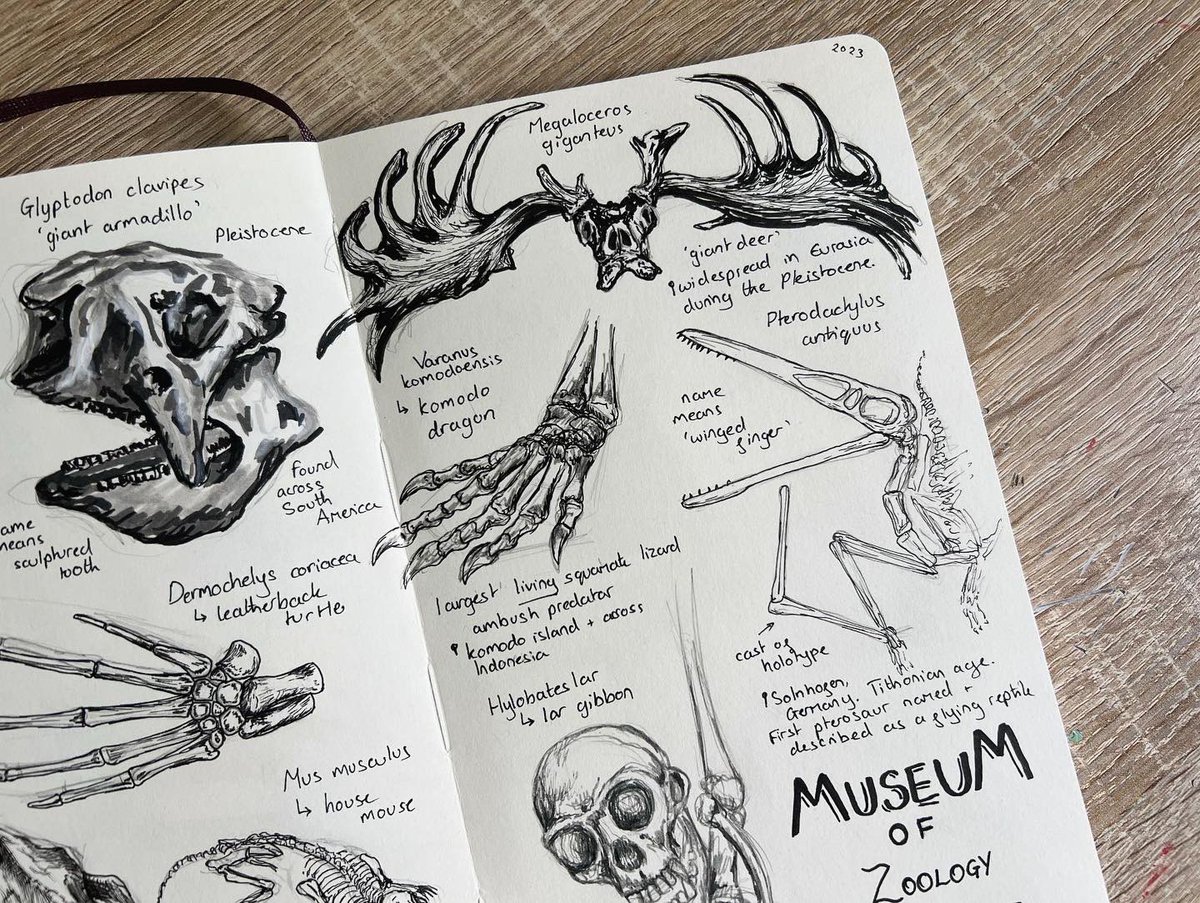 Glyptodon clavipes
'giant armadillo'
Pleistocene
found
across
South
America
ame
eans
sculptured
tooth
Dermochelys coriacea
↳ leatherback
turtle
Mus musculus
↳ house
mouse
2023
Megaloceros
giganteus
'giant deer'
widespread in Eurasia
during the Pleistocene.
Varanus
komodoensis
↳ komodo
dragon
largest living squamate lizard
ambush predator
komodo island + across
Indonesia
Pterodachylus
antiquus
name
means
'winged
finger'
cast of
holotype
Solnhogen,
Germany. Tithonian age.
First pterosaur named +
described as a flying reptile
Hylobates lar
↳ lar gibbon
MUSEUM
OF
ZOOLOGY